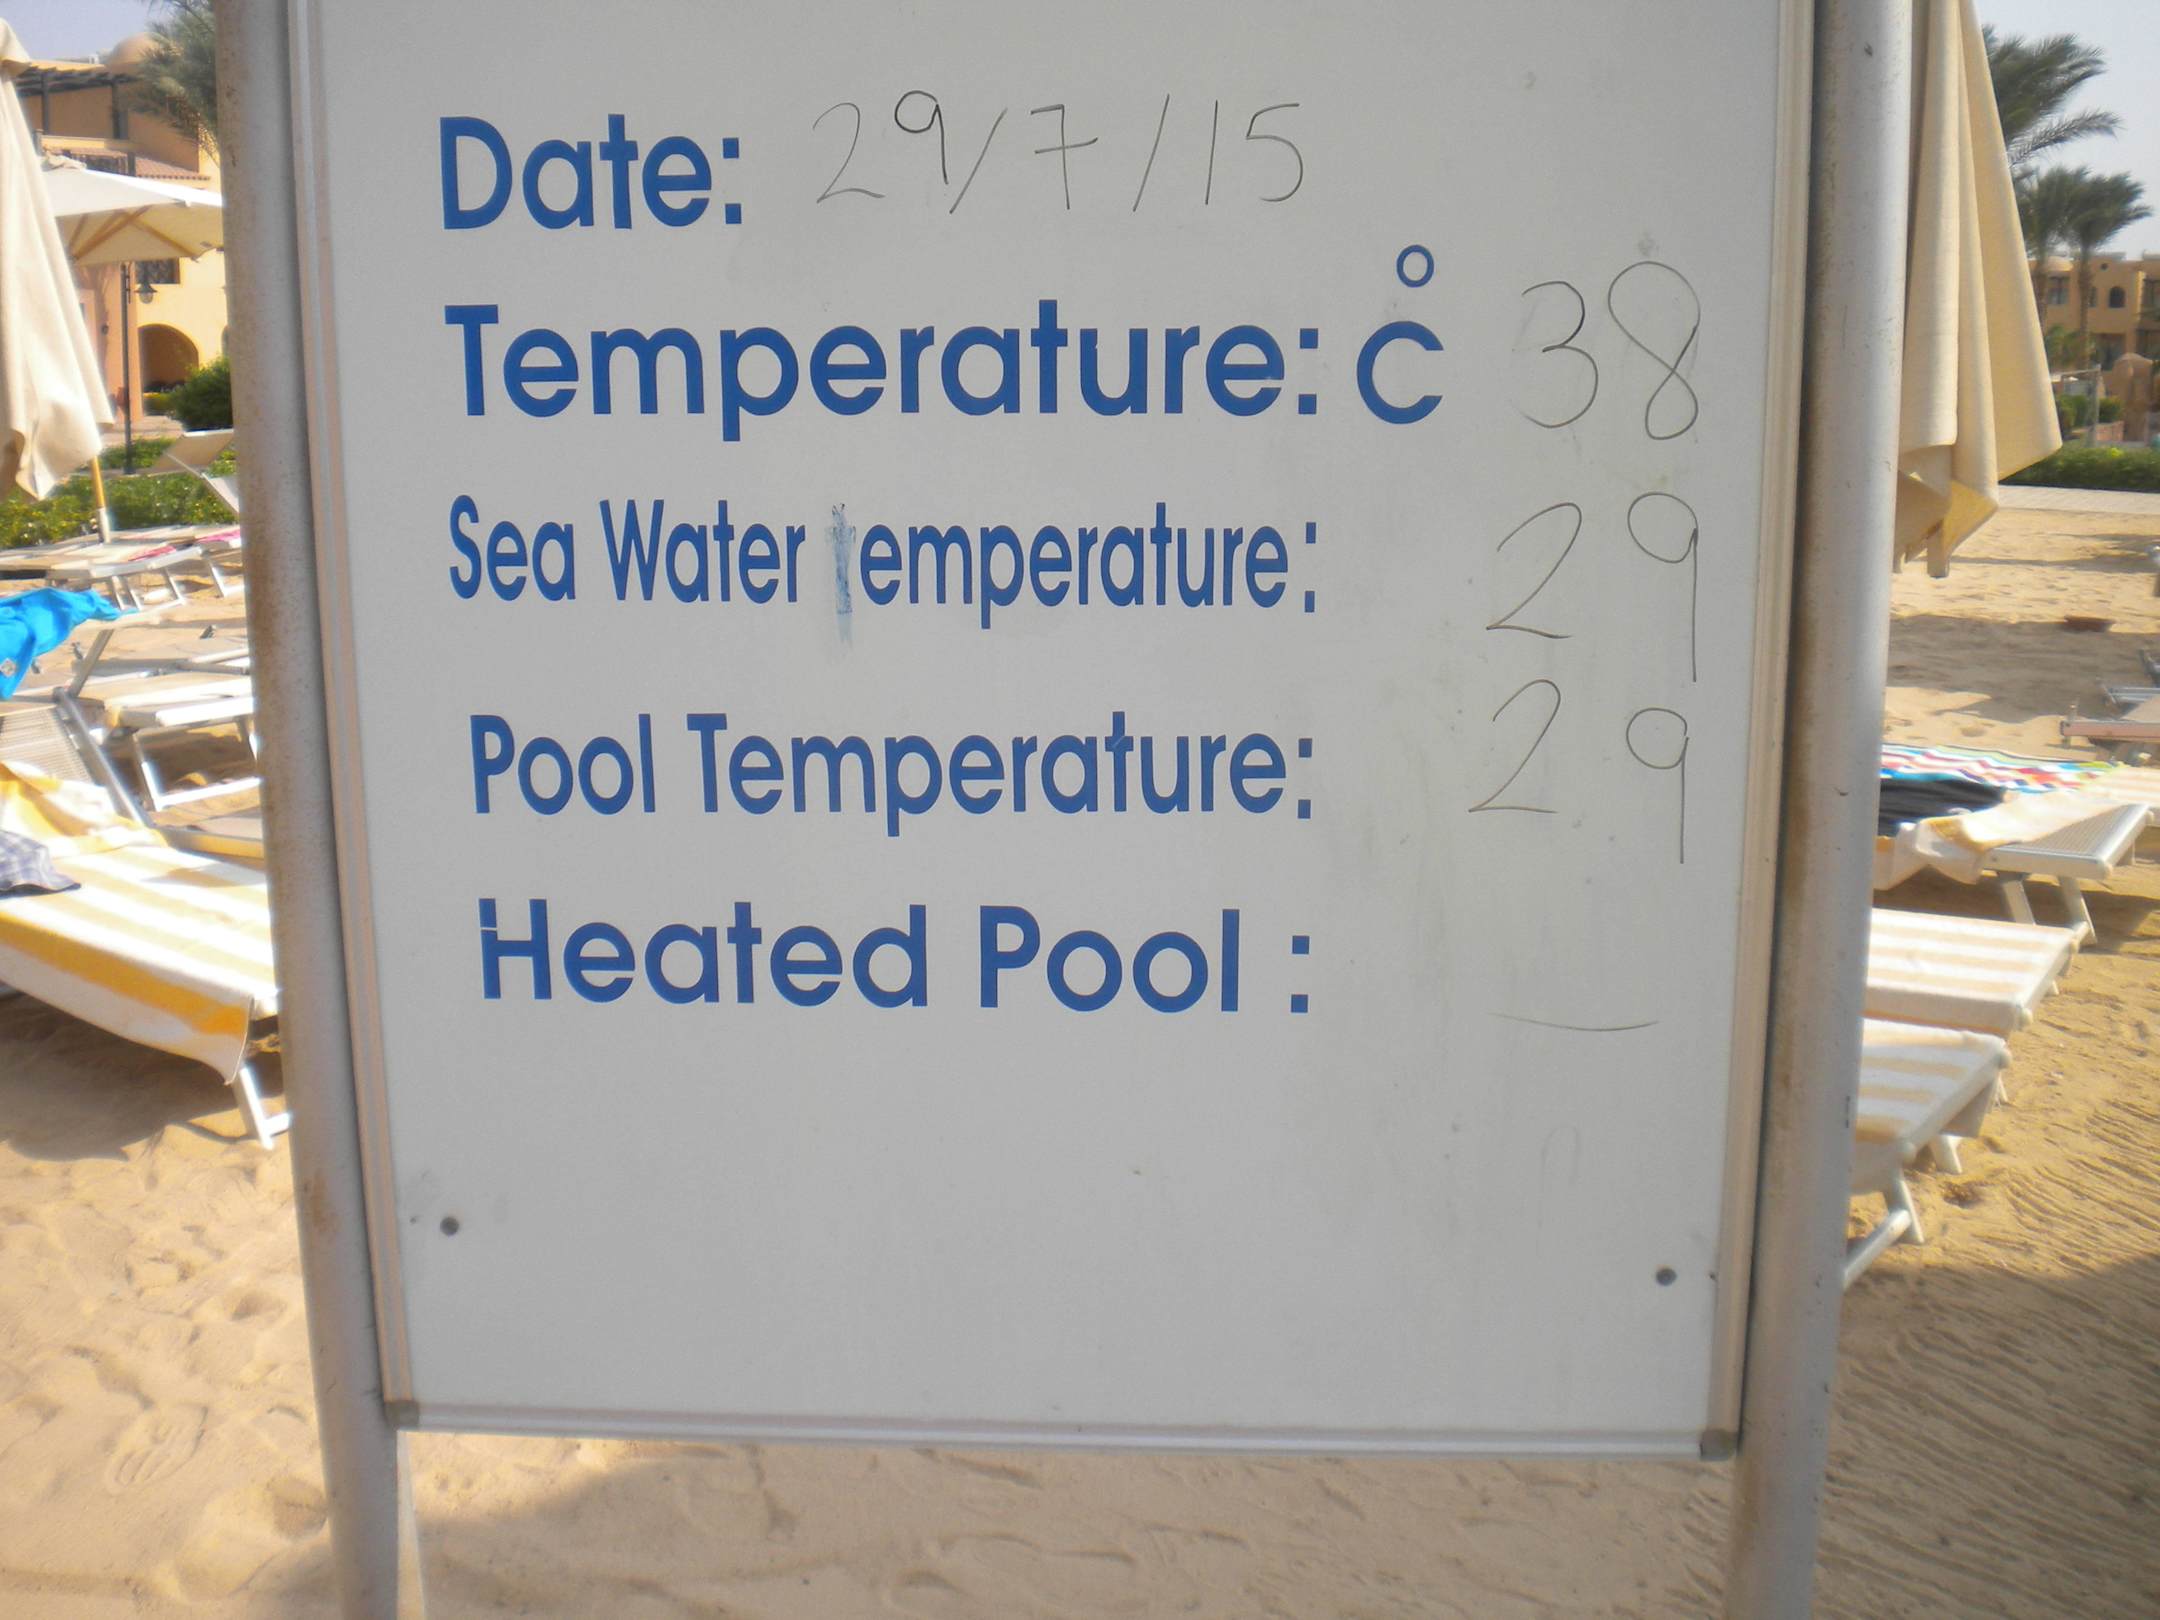 Date: 29/7/15
Temperature: °C 38
Sea Water Temperature: 29
Pool Temperature: 29
Heated Pool : —